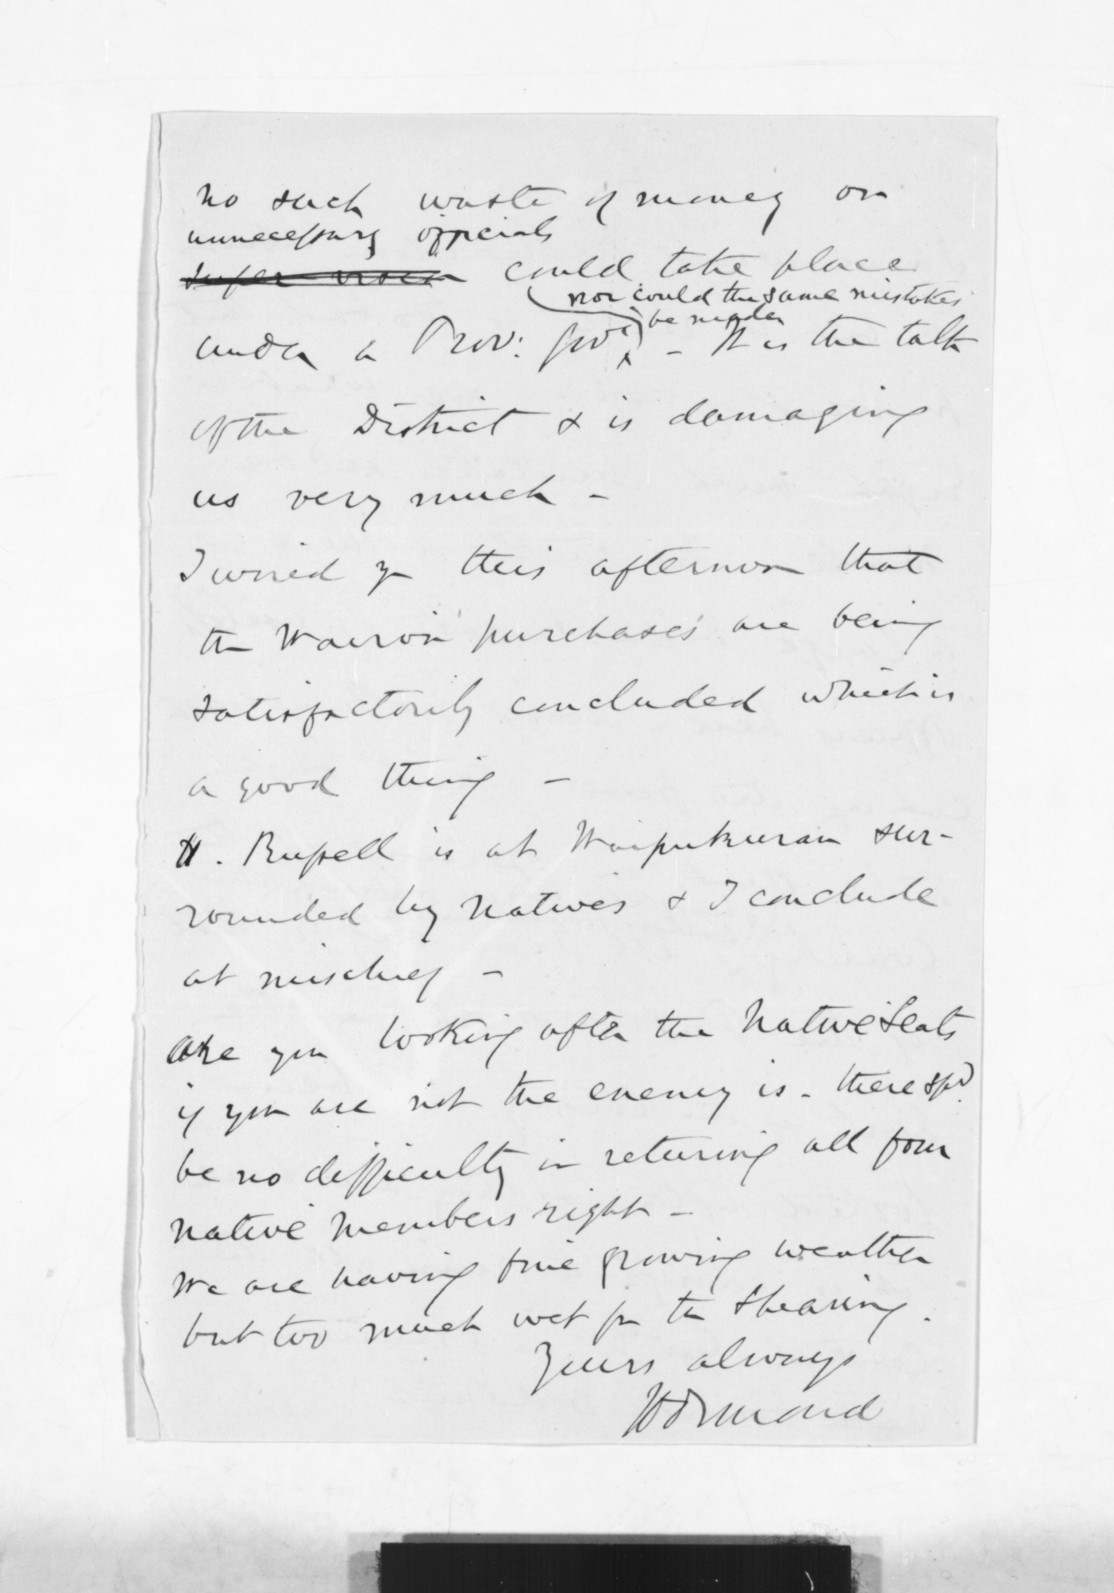 no such waste of money on
unnecessary officials
could take place
nor could the same mistakes
be made
under a Prov: Govt. - It is the talk
of the District & is damaging
us very much -
I wired yr this afternoon that
the Wairoa purchases are being
satisfactorily concluded which is
a good thing -
H. Russell is at Waipukurau sur-
rounded by Natives & I conclude
at mischief -
Are you looking after the Native Seats
if you are not the enemy is - there shd.
be no difficulty in returing all four
Native Members right -
We are having fine growing weather
but too much wet for the Shearing.
Yours always
Ormond